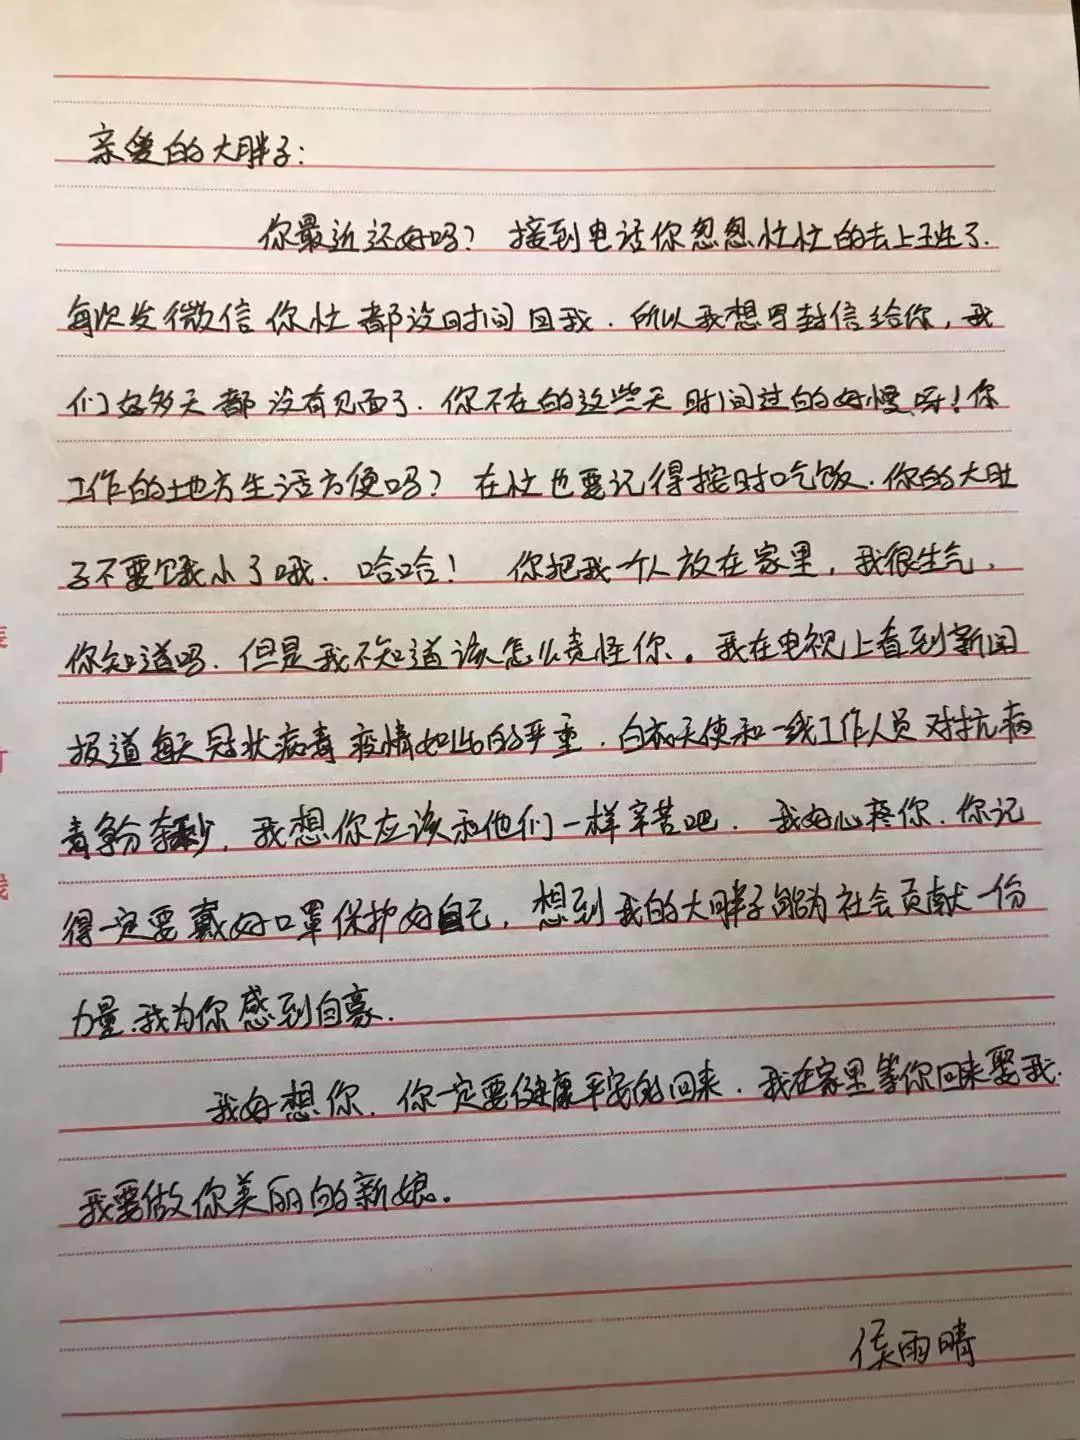 亲爱的大胖子：
你最近还好吗？接到电话你忽忽忙忙的去上班了.
每次发微信你忙都没时间回我.所以我想写封信给你，我
们好多天都没有见面了.你不在的这些天时间过的好慢呀！你
工作的地方生活方便吗？在忙也要记得按时吃饭.你的大肚
子不要饿小了哦.哈哈！你把我一个人放在家里，我很生气，
你知道吗.但是我不知道该怎么责怪你。我在电视上看到新闻
报道每天冠状病毒疫情如此的严重.白衣天使和一线工作人员对抗病
毒争分夺秒，我想你应该和他们一样辛苦吧.我好心疼你.你记
得一定要戴好口罩保护好自己，想到我的大胖子能为社会贡献一份
力量.我为你感到自豪.
我好想你.你一定要健康平安的回来.我在家里等你回来娶我.
我要做你美丽的新娘.
侯雨晴